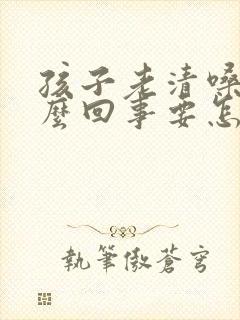 孩子老清嗓
麼回事要怎
執筆傲蒼穹